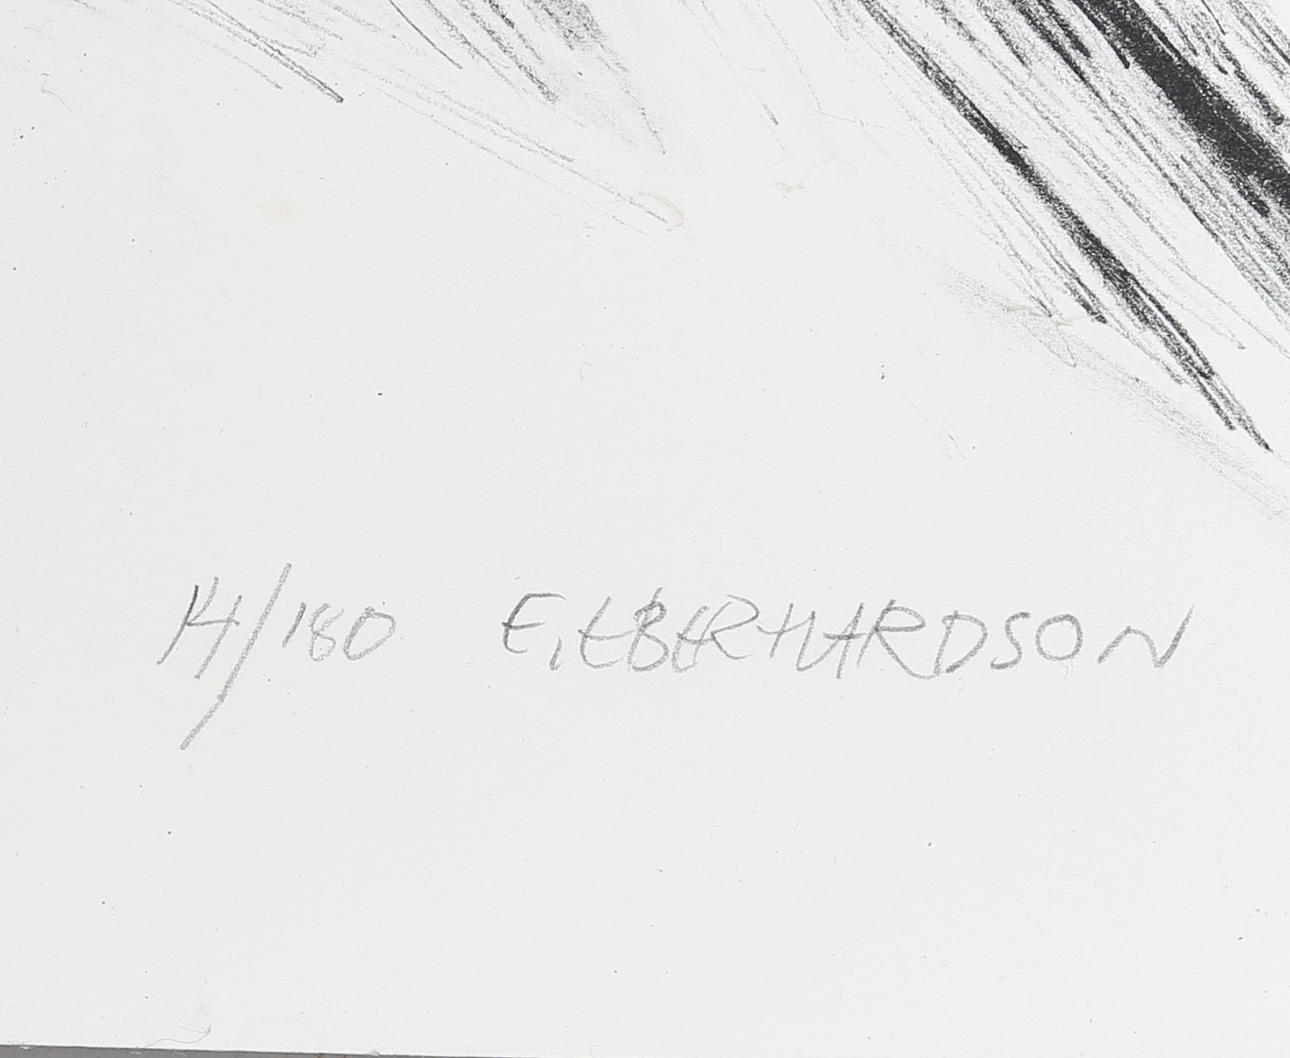 14/180 E. EBERHARDSON